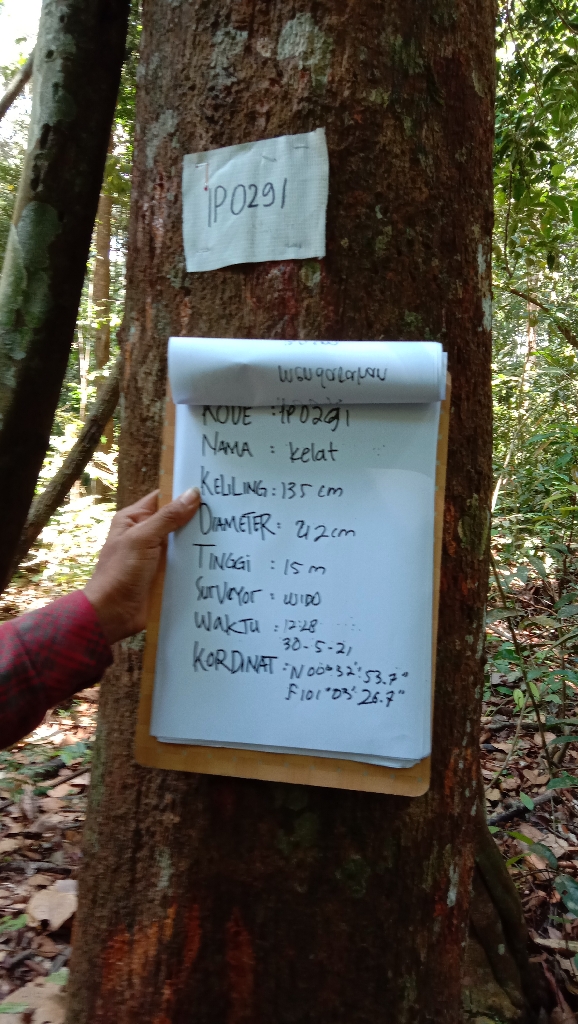 IP0291
KODE : IP0291
NAMA : Kelat
KELILING : 135 cm
DIAMETER : 42 cm
TINGGI : 15 m
Surveyor : WIDO
WAKTU : 12:28
30-5-21
KORDINAT : N 00°32' 53.7"
E 101°03' 26.7"